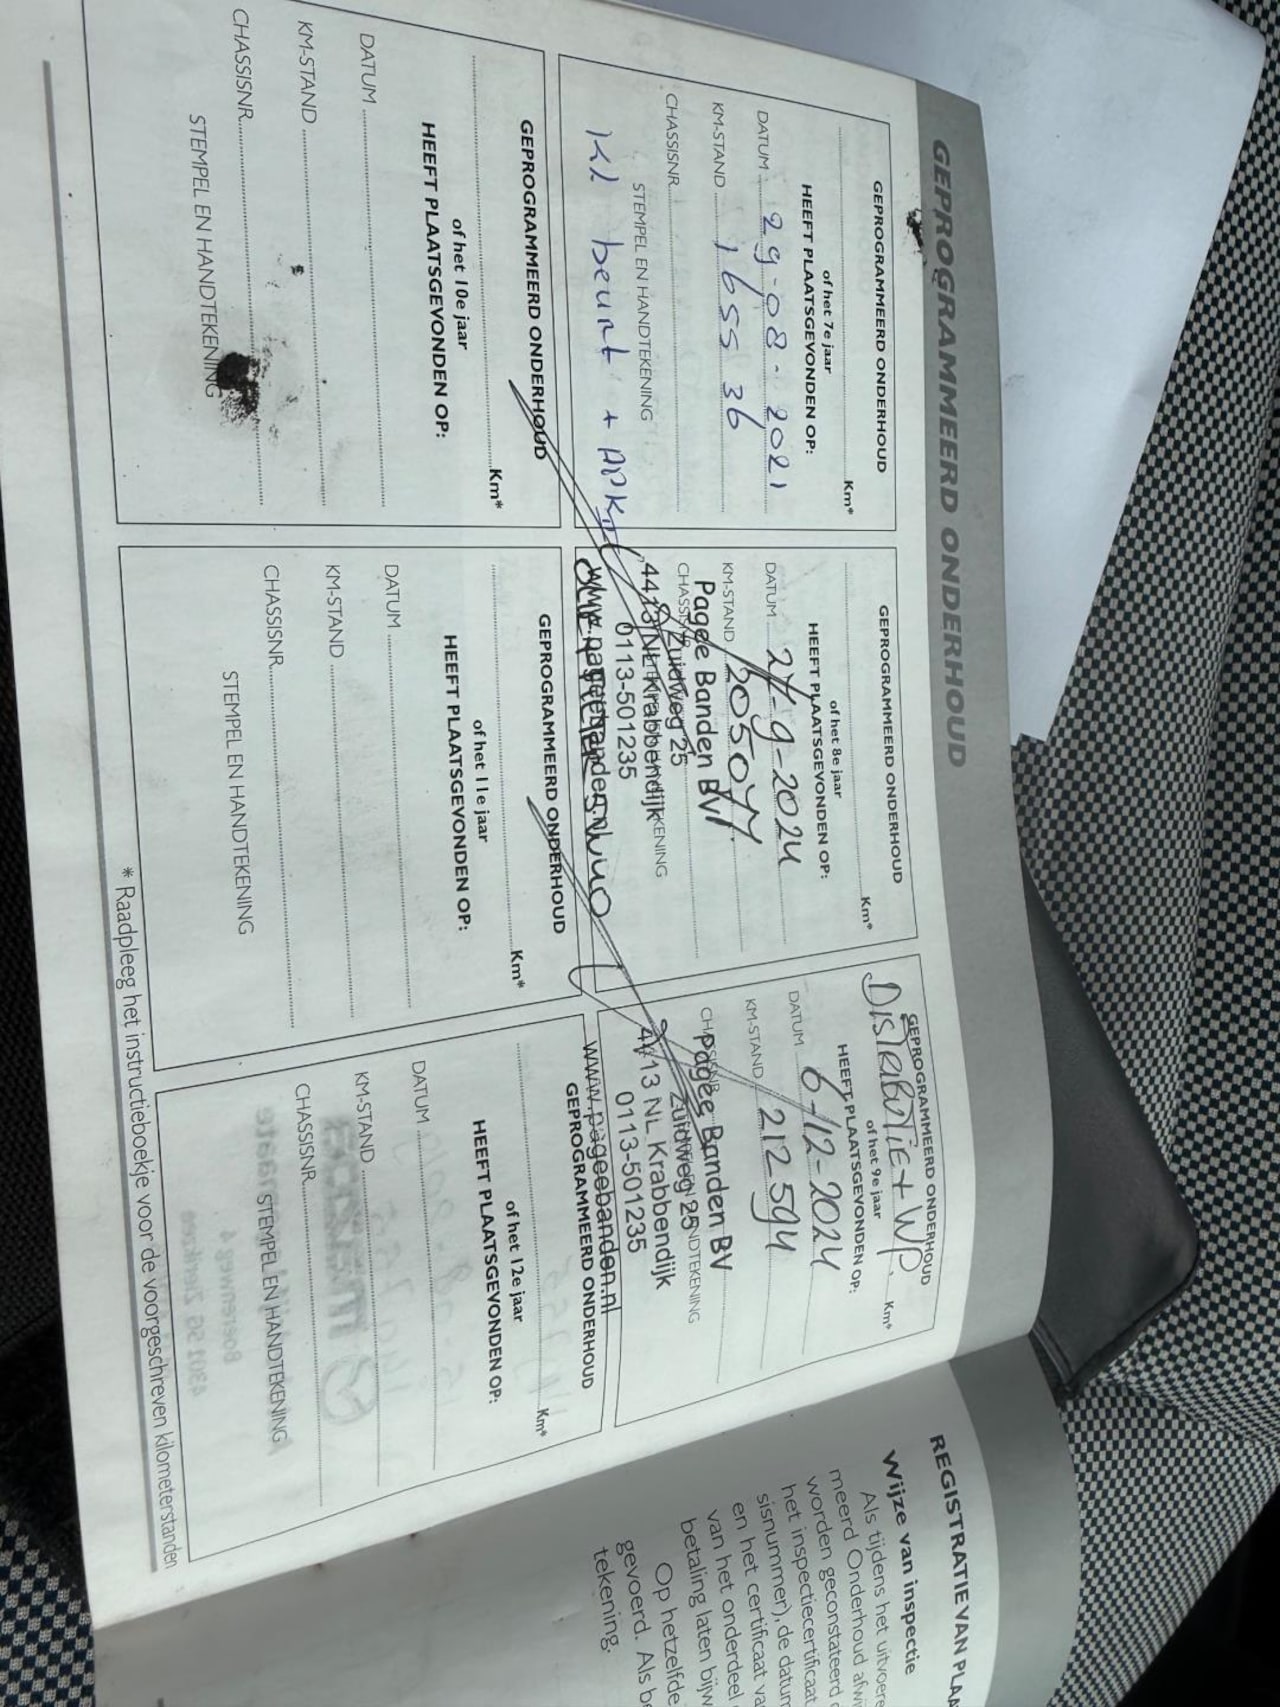 GEPROGRAMMEERD ONDERHOUD
GEPROGRAMMEERD ONDERHOUD
Km*
of het 7e jaar
HEEFT PLAATSGEVONDEN OP:
DATUM 29-08-2021
KM-STAND 165536
CHASSISNR.
STEMPEL EN HANDTEKENING
Kl beurt + APK
GEPROGRAMMEERD ONDERHOUD
Km*
of het 8e jaar
HEEFT PLAATSGEVONDEN OP:
DATUM 27-9-2024
KM-STAND 205077
CHASSISNR.
Pagee Banden BV
Zuidweg 25
4413 NL Krabbendijk
0113-501235
www.pageebanden.nl
GEPROGRAMMEERD ONDERHOUD
DISTRIBUTIE + WP.
Km*
of het 9e jaar
HEEFT PLAATSGEVONDEN OP:
DATUM 6-12-2024
KM-STAND 212594
CHASSISNR.
STEMPEL EN HANDTEKENING
Pagee Banden BV
Zuidweg 25
4413 NL Krabbendijk
0113-501235
www.pageebanden.nl
GEPROGRAMMEERD ONDERHOUD
Km*
of het 10e jaar
HEEFT PLAATSGEVONDEN OP:
DATUM
KM-STAND
CHASSISNR.
STEMPEL EN HANDTEKENING
GEPROGRAMMEERD ONDERHOUD
Km*
of het 11e jaar
HEEFT PLAATSGEVONDEN OP:
DATUM
KM-STAND
CHASSISNR.
STEMPEL EN HANDTEKENING
GEPROGRAMMEERD ONDERHOUD
Km*
of het 12e jaar
HEEFT PLAATSGEVONDEN OP:
DATUM
KM-STAND
CHASSISNR.
STEMPEL EN HANDTEKENING
* Raadpleeg het instructieboekje voor de voorgeschreven kilometerstanden
REGISTRATIE VAN PLAA
Wijze van inspectie
Als tijdens het uitvoere
meerd Onderhoud afwi
worden geconstateerd
het inspectiecertificaat
sisnummer), de datum
en het certificaat va
van het onderdeel
betaling laten bijw
Op hetzelfde
gevoerd. Als be
tekening.